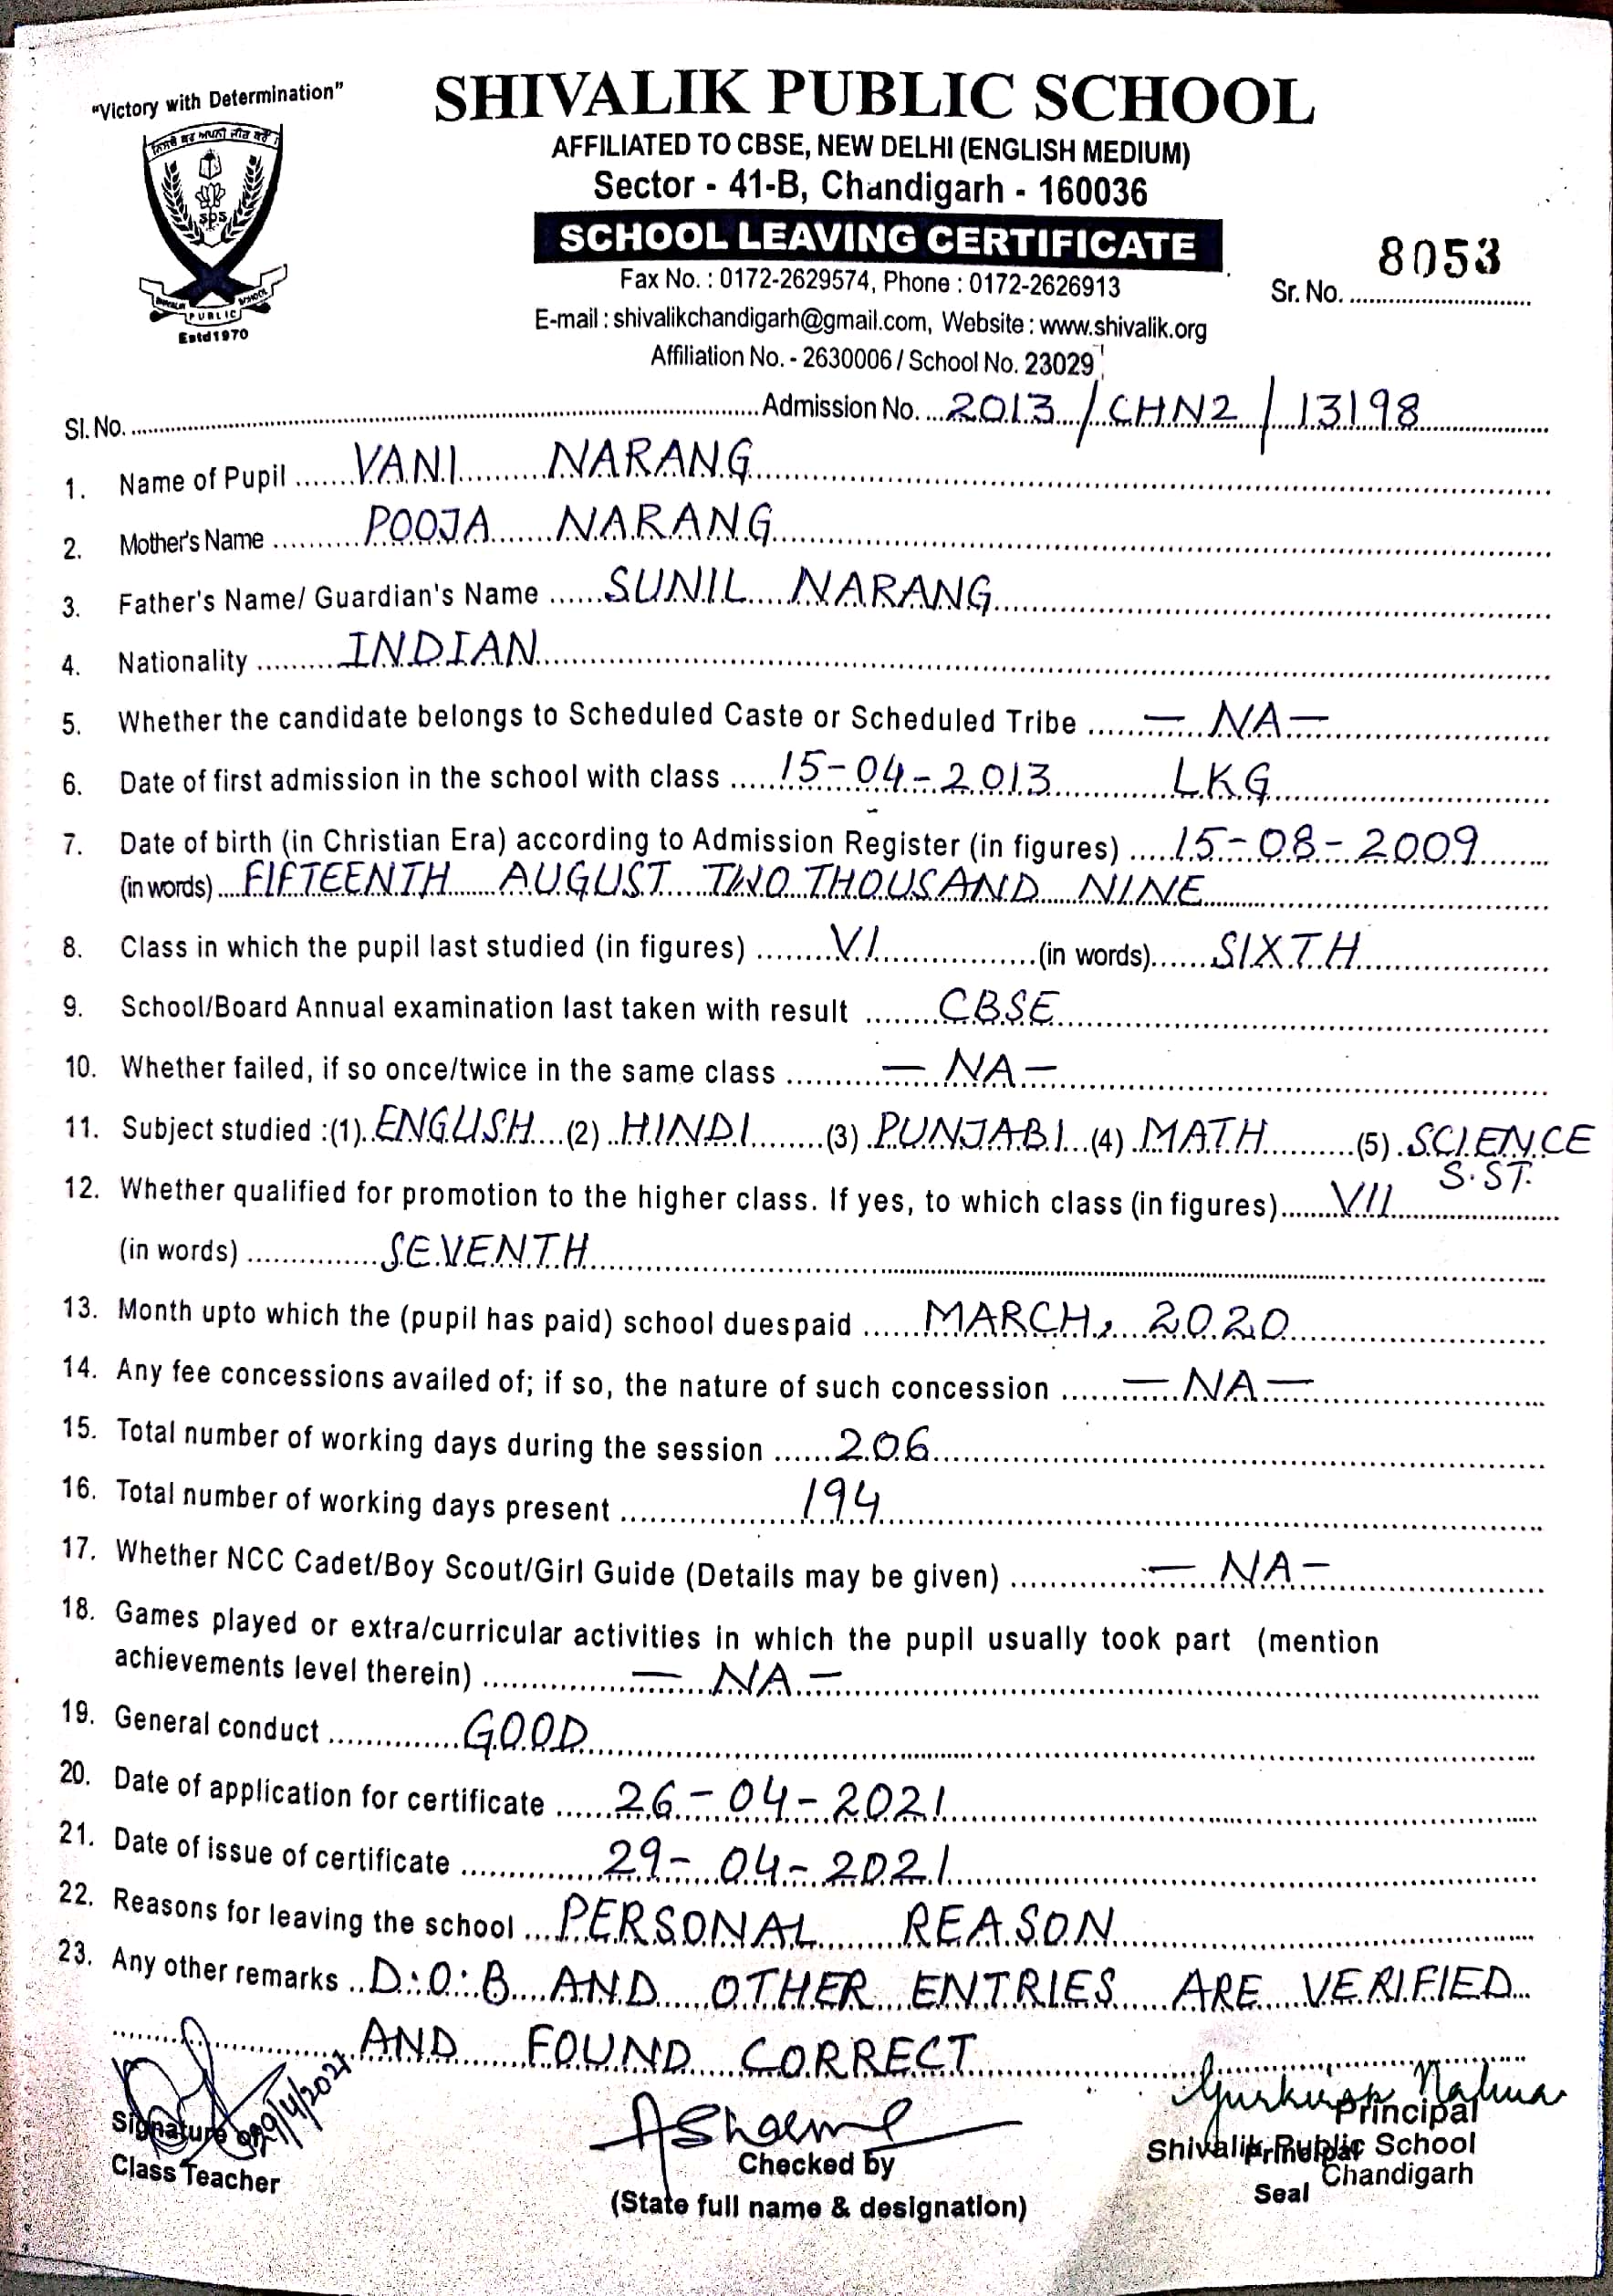 "Victory with Determination"
SHIVALIK PUBLIC SCHOOL
AFFILIATED TO CBSE, NEW DELHI (ENGLISH MEDIUM)
Sector - 41-B, Chandigarh - 160036
SCHOOL LEAVING CERTIFICATE
Fax No. : 0172-2629574, Phone : 0172-2626913
E-mail : shivalikchandigarh@gmail.com, Website : www.shivalik.org
Affiliation No. - 2630006 / School No. 23029
SPS
PUBLIC SCHOOL
Estd1970
Sr. No. 8053
Sl. No. Admission No. 2013/CHN2/13198
1. Name of Pupil VANI NARANG
2. Mother's Name POOJA NARANG
3. Father's Name/ Guardian's Name SUNIL NARANG
4. Nationality INDIAN
5. Whether the candidate belongs to Scheduled Caste or Scheduled Tribe — NA —
6. Date of first admission in the school with class 15-04-2013 LKG
7. Date of birth (in Christian Era) according to Admission Register (in figures) 15-08-2009
(in words) FIFTEENTH AUGUST TWO THOUSAND NINE
8. Class in which the pupil last studied (in figures) VI (in words) SIXTH
9. School/Board Annual examination last taken with result CBSE
10. Whether failed, if so once/twice in the same class — NA —
11. Subject studied :(1) ENGLISH (2) HINDI (3) PUNJABI (4) MATH (5) SCIENCE
S.ST.
12. Whether qualified for promotion to the higher class. If yes, to which class (in figures) VII
(in words) SEVENTH
13. Month upto which the (pupil has paid) school duespaid MARCH, 2020
14. Any fee concessions availed of; if so, the nature of such concession — NA —
15. Total number of working days during the session 206
16. Total number of working days present 194
17. Whether NCC Cadet/Boy Scout/Girl Guide (Details may be given) — NA —
18. Games played or extra/curricular activities in which the pupil usually took part (mention
achievements level therein) — NA —
19. General conduct GOOD
20. Date of application for certificate 26-04-2021
21. Date of issue of certificate 29-04-2021
22. Reasons for leaving the school PERSONAL REASON
23. Any other remarks D.O.B AND OTHER ENTRIES ARE VERIFIED
AND FOUND CORRECT
29/4/2021
Signature of
Class Teacher
ASharma
Checked by
(State full name & designation)
Principal
Shivalik Public School
Chandigarh
Principal
Seal